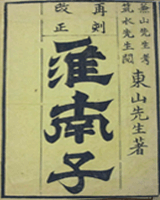 兼山先生考
筑水先生閲
東山先生著
再刻
改正
淮南子